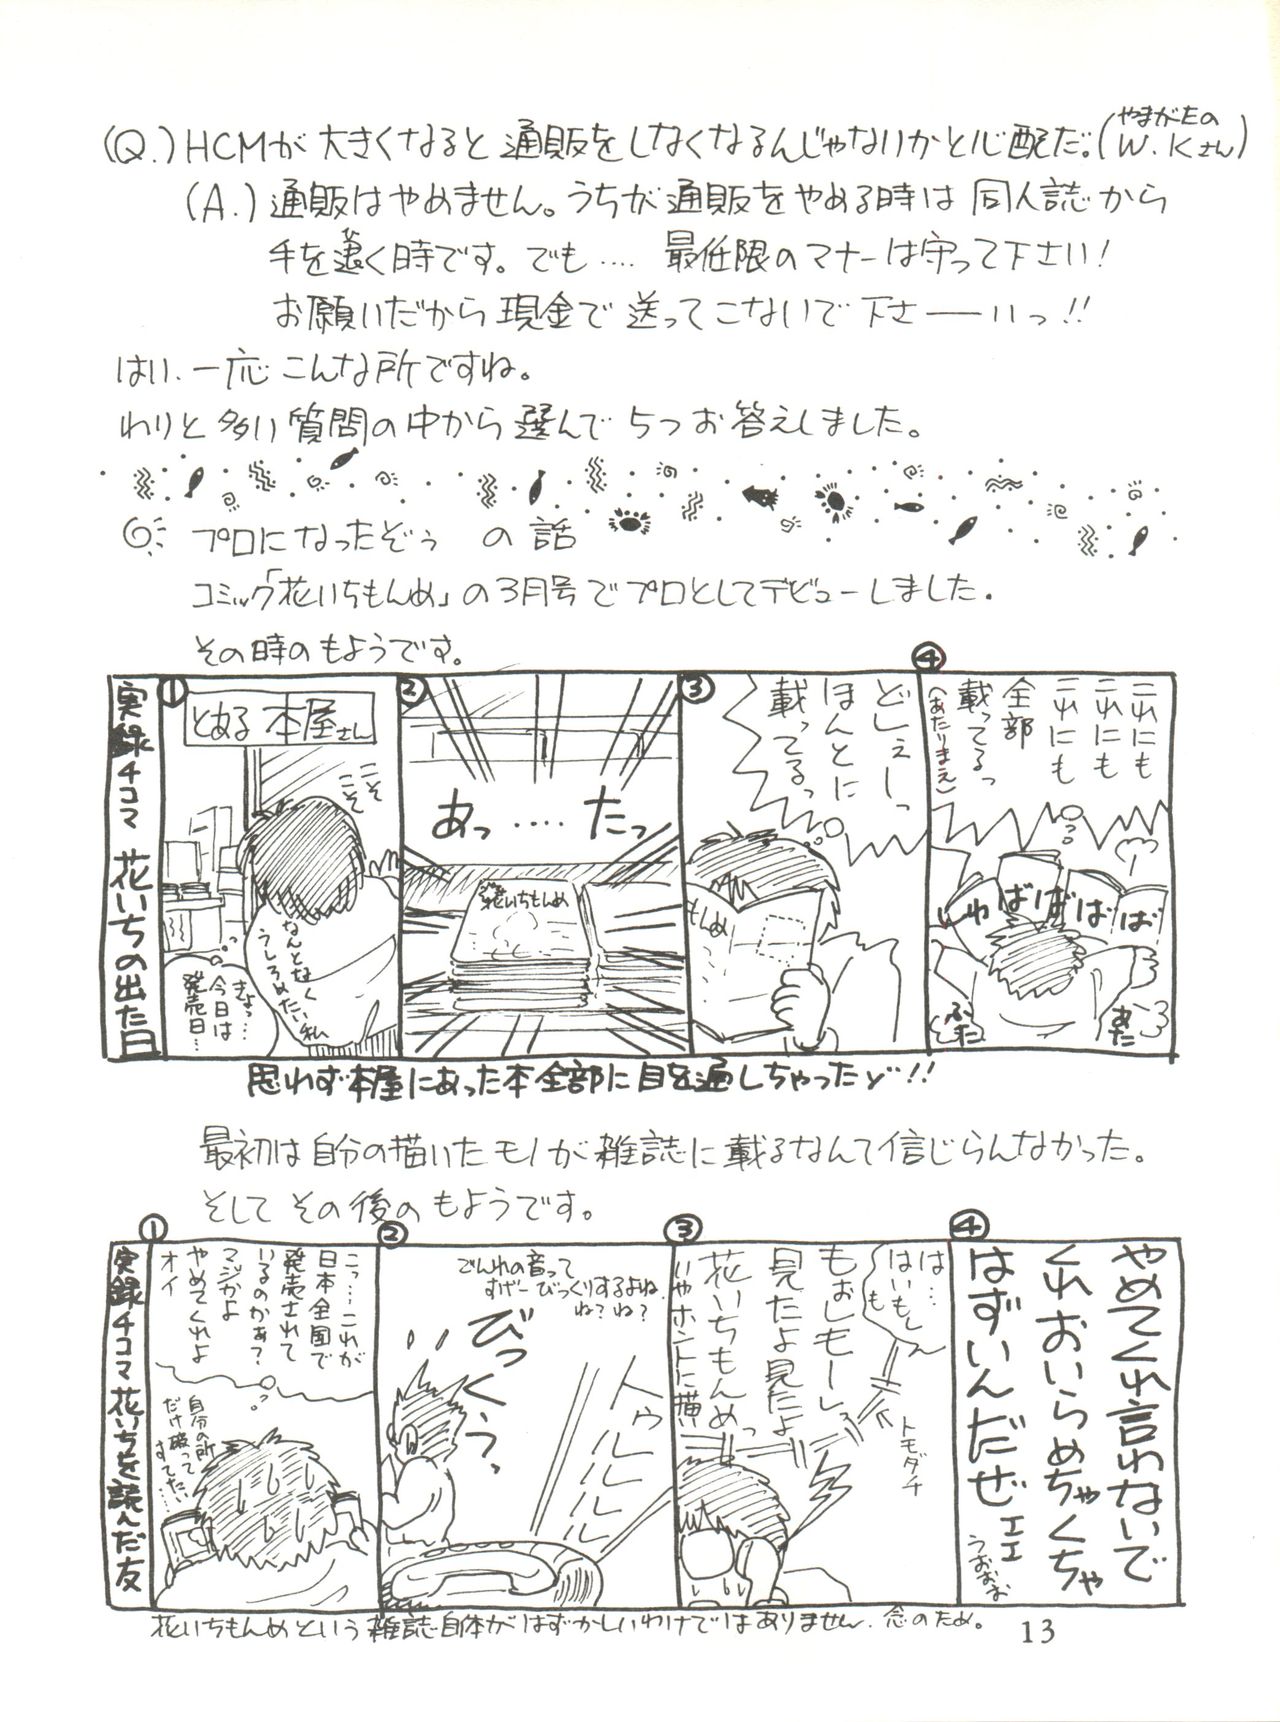 (Q.)HCMが大きくなると通販をしなくなるんじゃないかと心配だ。(やまがたの W.Kさん)
(A.)通販はやめません。うちが通販をやめる時は同人誌から
手を退く時です。でも‥‥最低限のマナーは守って下さい!
お願いだから現金で送ってこないで下さーーいっ!!
はい、一応こんな所ですね。
わりと多い質問の中から選んで5つお答えしました。
プロになったぞぅ の話
コミック「花いちもんめ」の3月号でプロとしてデビューしました.
その時のもようです。
実録4コマ 花いちの出た日
①
とある本屋さん
こそ
こそ
なんとなく
うしろめたい私
きょっ…
今日は
発売日…
②
あっ‥‥たっ
花いちもんめ
③
どしぇーっ
ほんとに
載ってるっ
もんめ
④
これにも
これにも
これにも
全部
載ってるっ
(あたりまえ)
しゅばばばばば
ふた
あた
思わず本屋にあった本全部に目を通しちゃったゾ!!
最初は自分の描いたモノが雑誌に載るなんて信じらんなかった。
そして その後のもようです。
実録4コマ 花いちを読んだ友
①
こっ…これが
日本全国で
発売されて
いるのかぁ?
マジかよ
やめてくれよ
オイ
自分の所
だけ破って
すてたい…
②
でんわの音って
すげーびっくりするよね
ね?ね?
びっくぅっ
トゥルルルル
③
は…
はいもし
も
もぉしもーしっ
見たよ見たよ
花いちもんめっ
いやホントに描い
トモダチ
④
やめてくれ言わないで
くれおいらめちゃくちゃ
はずいんだぜェェ
うおおお
花いちもんめという雑誌自体がはずかしいわけではありません.念のため。
13